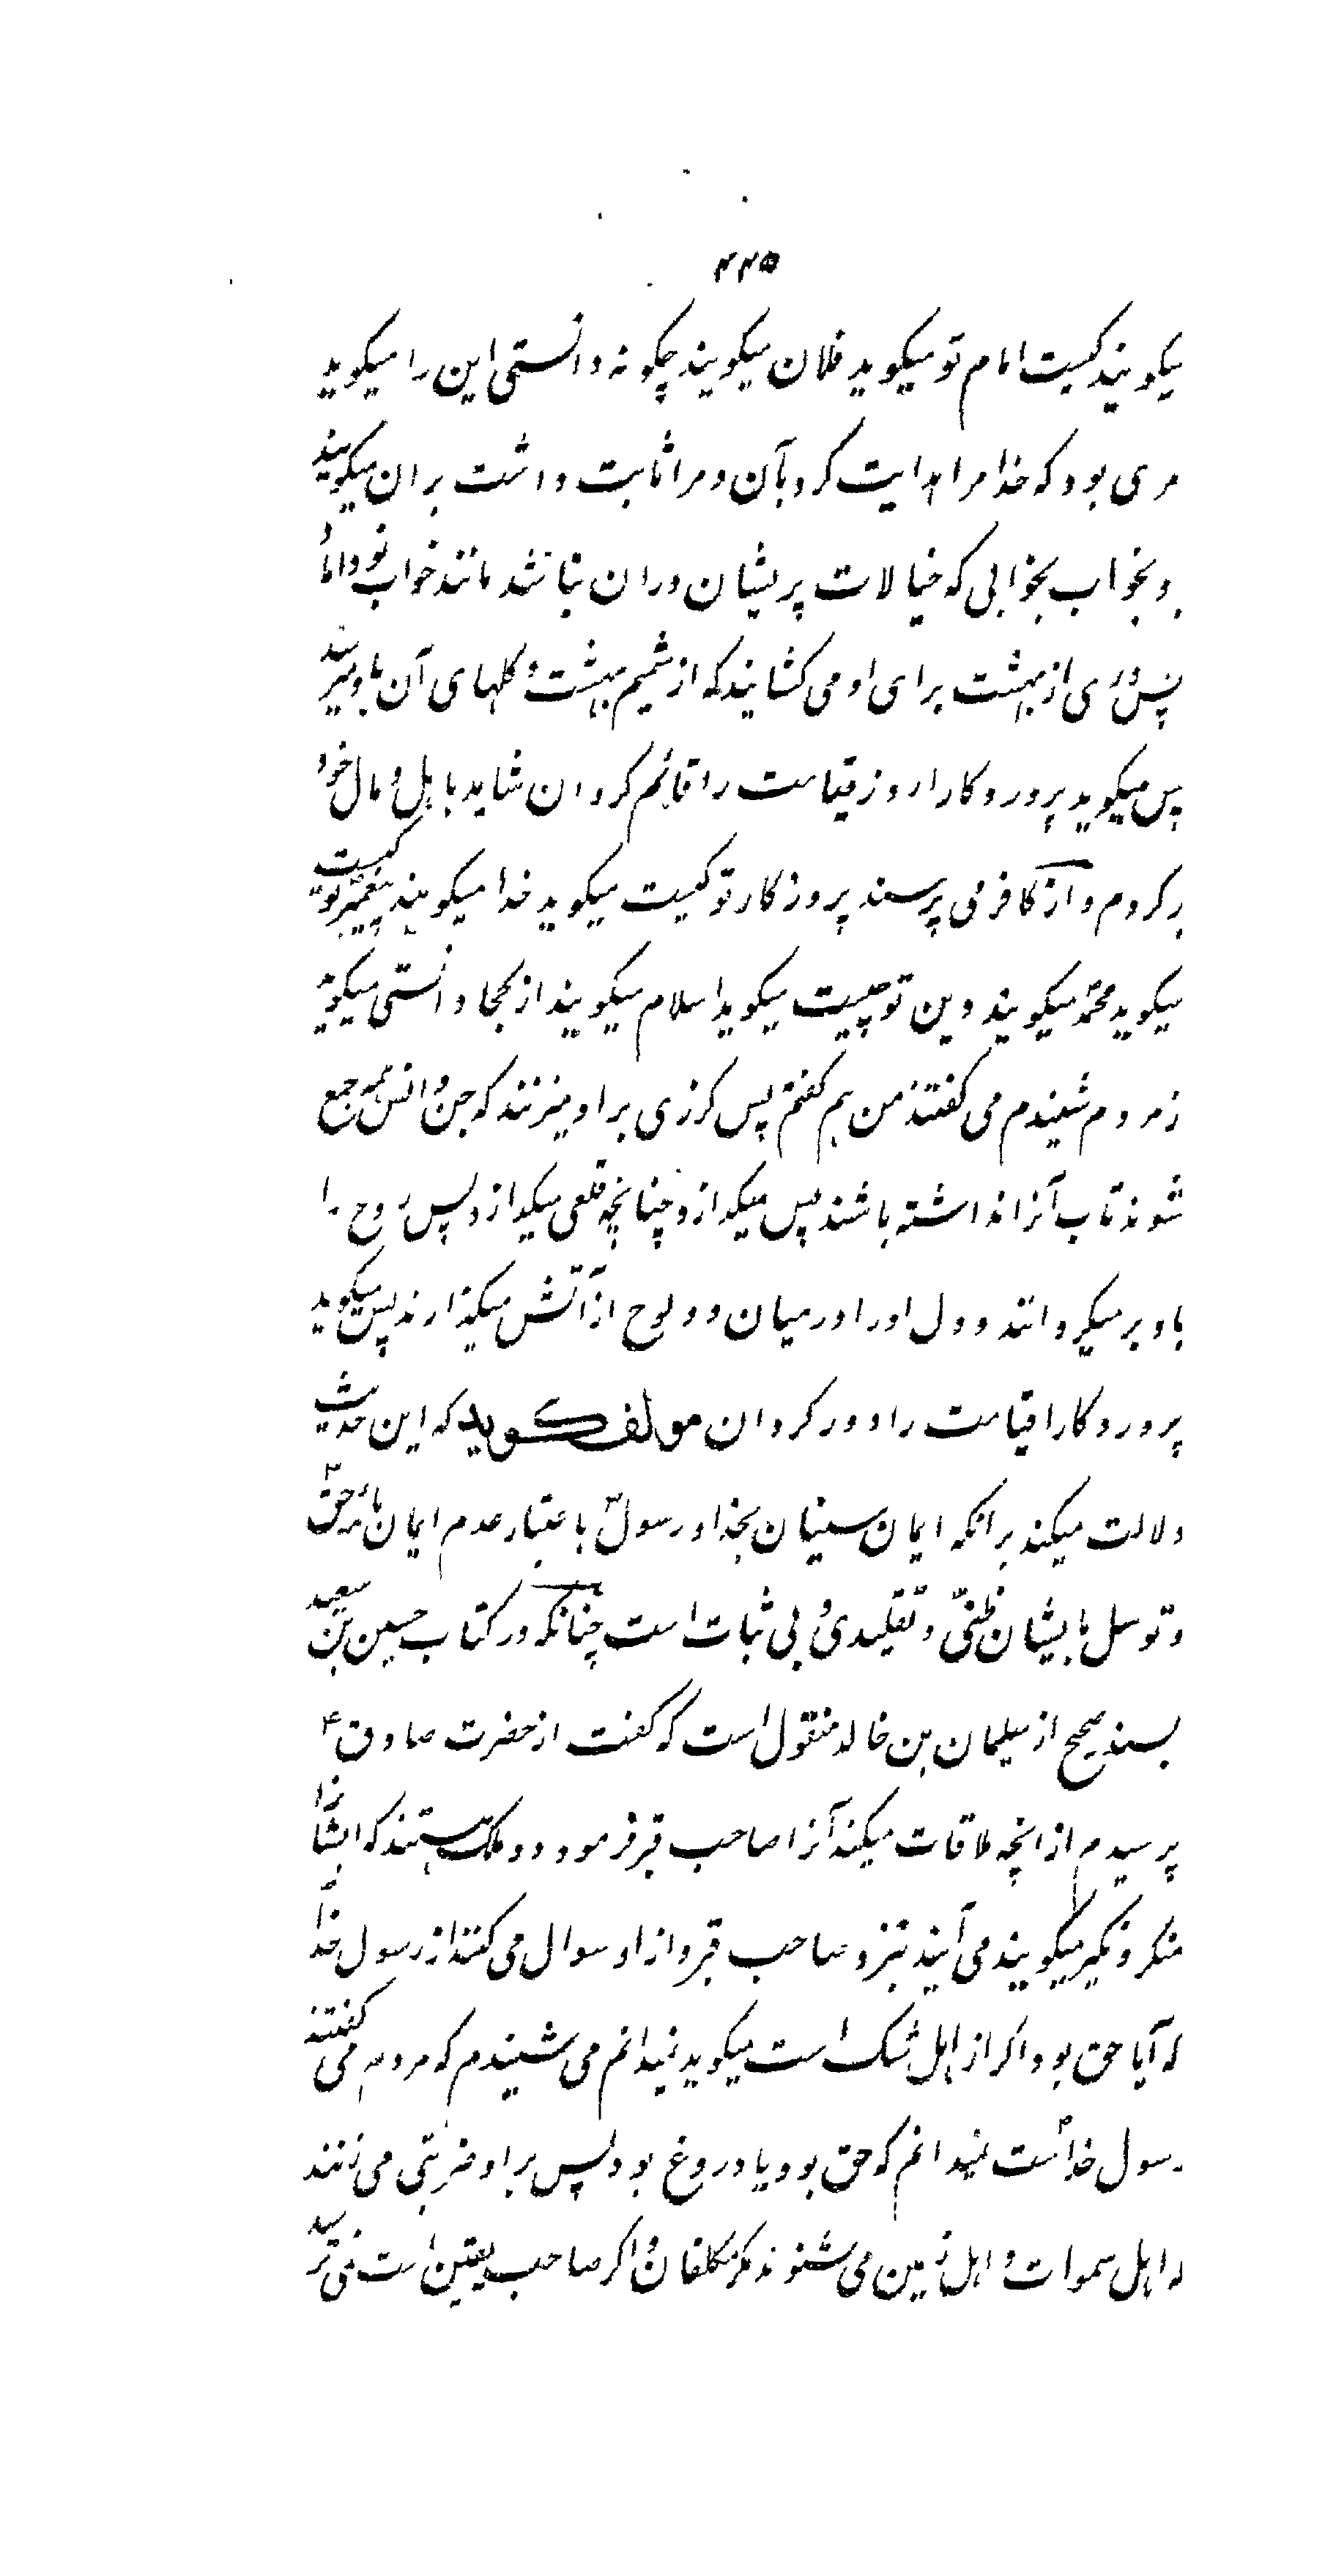 ۴۴۵
میکویند کیست امام تو میکوید فلان میکویند چکونه دانستی این را میکوید
مری بود که خدا مرا هدایت کرد بآن و مرا ثابت داشت بران میکویند
و بخواب بخوابی که خیالات پریشان دران نباشد مانند خواب نو داماد
پس دری از بهشت برای او می کشایند که از شمیم بهشت و کلهای آن باو میرسد
پس میکوید پروردکارا روز قیامت را قائم کردان شاید باهل و مال خود
بر کردم و از کافر می پرسند پروردکار تو کیست میکوید خدا میکویند پیغمبر تو کیست
میکوید محمد میکویند دین تو چیست میکوید اسلام میکویند از کجا دانستی میکوید
زمردم شنیدم می کفتند من هم کفتم پس کرزی بر او میزنند که جن و انس همه جمع
شوند تاب آنرا نداشته باشند پس میکدازد چنانچه قلعی میکدازد پس روح را
باو بر میکردانند و دل او را در میان دو لوح از آتش میکذارند پس میکوید
پروردکارا قیامت را دور کردان مولف کوید که این حدیث
دلالت میکند برانکه ایمان سنیان بخدا و رسول ؐ باعتبار عدم ایمان بائمه حق
و توسل بایشان ظنی و تقلیدی و بی ثبات است چنانکه در کتاب حسین بن سعید
بسند صحیح از سلیمان بن خالد منقول است که کفت از حضرت صادق ع
پرسیدم از انچه ملاقات میکند آنرا صاحب قبر فرمود دو ملک هستند که ایشانرا
منکر و نکیر میکویند می آیند بنزد صاحب قبر و از او سوال می کنند از رسول خدا
که آیا حق بود اکر از اهل شک است میکوید نمیدانم می شنیدم که مردم می کفتند
رسول خداست نمیدانم که حق بود یا دروغ بود پس بر او ضربتی می زنند
که اهل سموات و اهل زمین می شنوند مکر مکلفان و اکر صاحب یقین است نمی ترسد